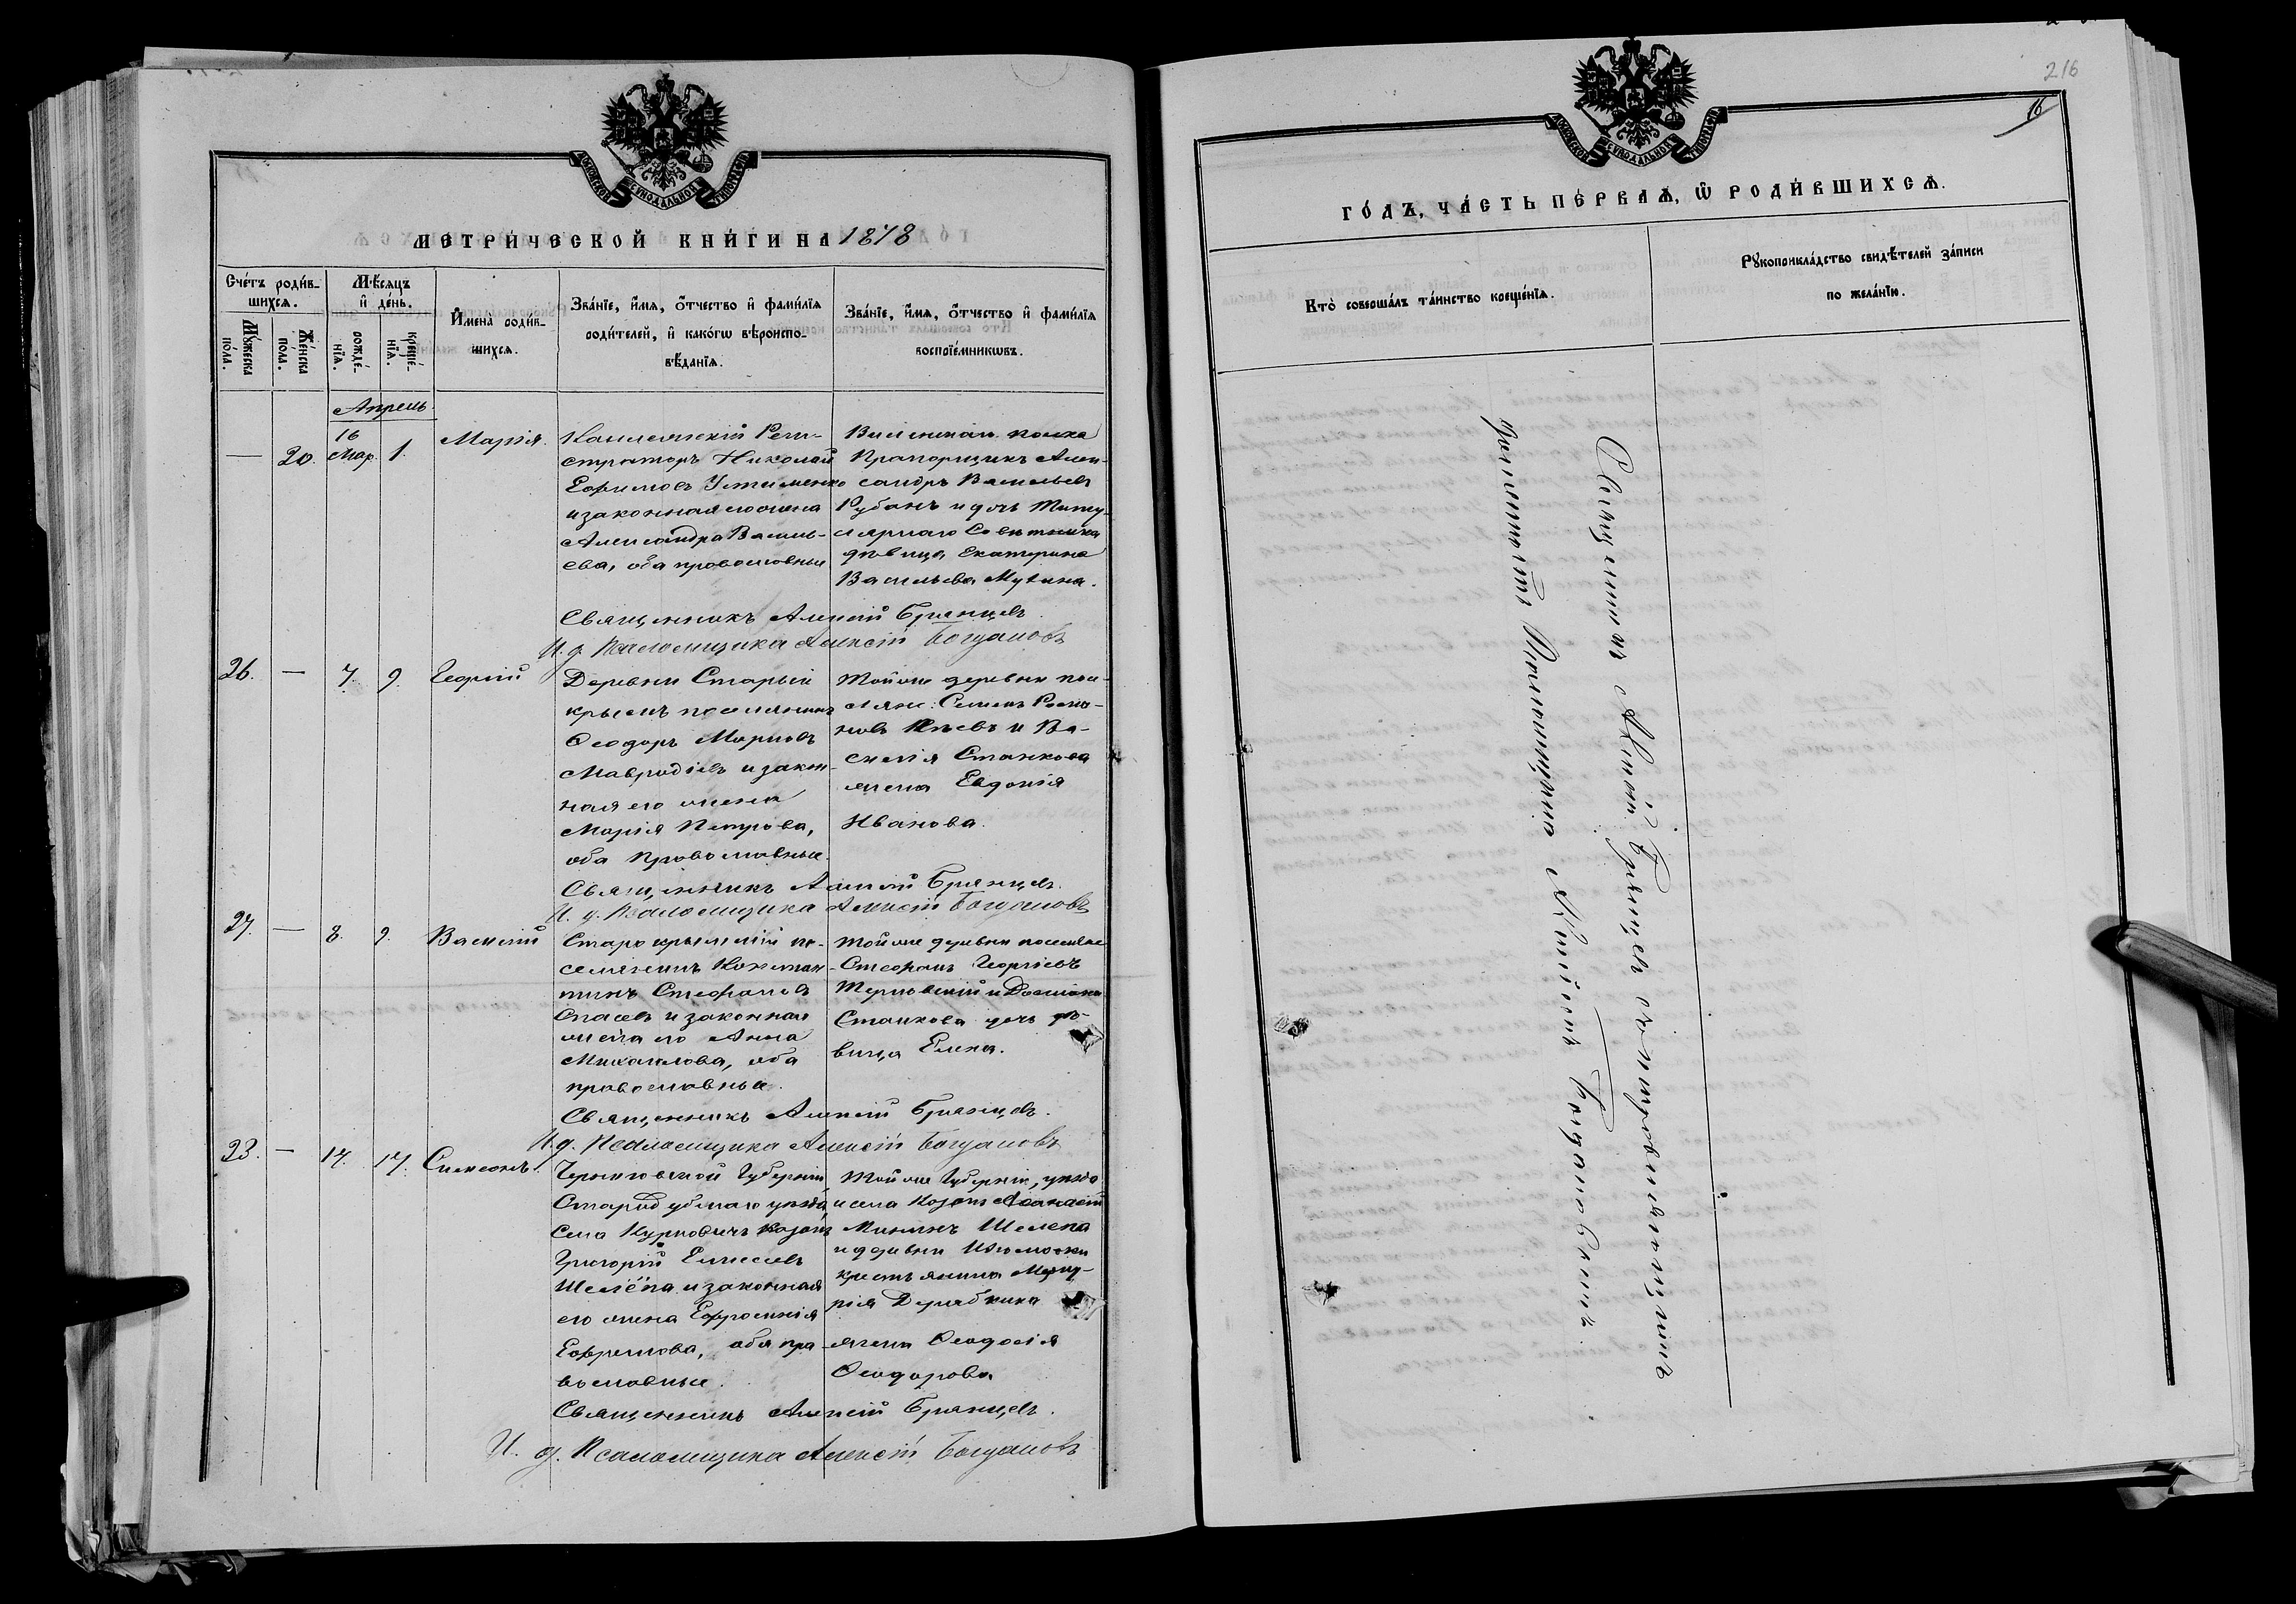 МЕТРИ́ЧЕСКОЙ КНИ́ГИ НА 1878
Счéтъ роди́в-
шихся.
Мѣ́сяцъ
и҆ де́нь.
Мꙋ́жеска
по́ла.
Же́нска
по́ла.
рожде́-
нїѧ.
креще́-
нїѧ.
И҆мена̀ роди́в-
шихсѧ.
Зва́нїе, и҆́мѧ, ѻ҆́тчество и҆ фами́лїѧ
роди́телей, и҆ како́гѡ вѣроиспо-
вѣ́данїѧ.
Зва́нїе, и҆́мѧ, ѻ҆́тчество и҆ фами́лїѧ
воспрїе́мникѡвъ.
Апрель
— 20. 16 Мар. 1. Марія.
Канцелярскій Реги-
страторъ Николай
Ефимовъ Устименко
и законная его жена
Александра Василь-
ева, оба православные
полка
Прапорщикъ Алек-
сандръ Васильевъ
Рубанъ и дочь Титу-
лярнаго Совѣтника
дѣвица Екатерина
Васильева
Священникъ Алексій Брянцевъ.
И. д. Псаломщика Алексій Богдановъ
26. — 7. 9. Георгій
Деревни Старый
крымъ поселянинъ
Ѳеодоръ
Мавродіевъ и закон-
ная его жена
Марія Петрова,
оба православные.
Той же деревни посе-
ляне: Семенъ
и Ва-
силія Станкова
жена Евдокія
Иванова.
Священникъ Алексій Брянцевъ.
И. д. Псаломщика Алексій Богдановъ
27. — 8. 9. Василій
Старокрымскій по-
селянинъ Констан-
тинъ Стефановъ
Спасевъ и законная
жена его Анна
Михаилова, оба
православные.
Той же деревни поселяне
Стефанъ Георгіевъ
Терновскій и
Станкова дочь дѣ-
вица Елена.
Священникъ Алексій Брянцевъ.
И. д. Псаломщика Алексій Богдановъ
23. — 14. 17. Симеонъ.
Черниговской Губерніи
Стародубскаго уѣзда,
Села Курковичъ козакъ
Григорій Елисеевъ
Шелёпа и законная
его жена Ефросинія
Ефремова, оба пра-
вославные.
Той же Губерніи, уѣзда
и села козакъ Аѳанасій
Шелепа
и деревни
крестьянина
рія
жена Ѳеодосія
Ѳеодорова
Священникъ Алексій Брянцевъ.
И. д. Псаломщика Алексій Богдановъ
216
16
ГО́ДЪ, ЧА́СТЬ ПЕ́РВАѦ, Ѽ РОДИ́ВШИХСѦ.
Кто̀ соверша́лъ та́инство креще́нїѧ.
Рꙋкоприкла́дство свидѣ́телей за́писи
по жела́нїю.
Священникъ Алексій Брянцевъ съ
Псаломщика Алексіемъ Богдановымъ.
МОСКОВСКОЙ СѴНОДАЛЬНОЙ ТИПОГРАФІИ
МОСКОВСКОЙ СѴНОДАЛЬНОЙ ТИПОГРАФІИ